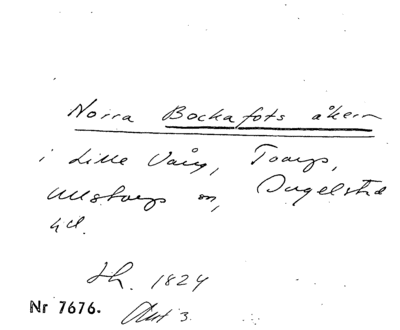 Norra Bockafots åkern
i Lille Vång, Toarps,
Ullstorps sn, Ingelstad
hd.
Lh. 1824
Akt 3.
Nr 7676.